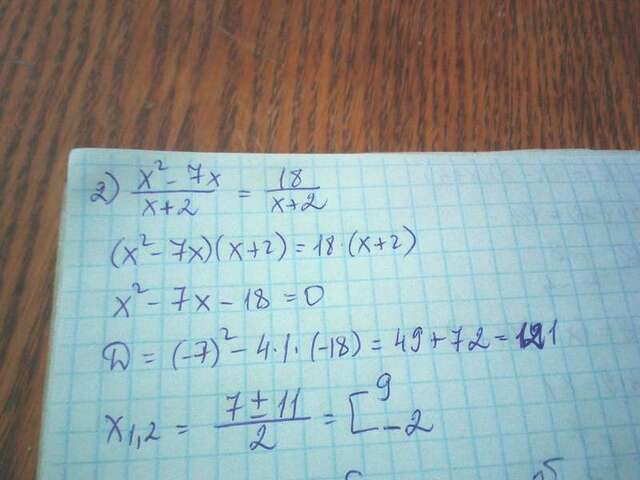 2) (x² - 7x)/(x+2) = 18/(x+2)
(x² - 7x)(x+2) = 18·(x+2)
x² - 7x - 18 = 0
D = (-7)² - 4·1·(-18) = 49 + 72 = 121
x₁,₂ = (7 ± 11)/2 = [9 -2